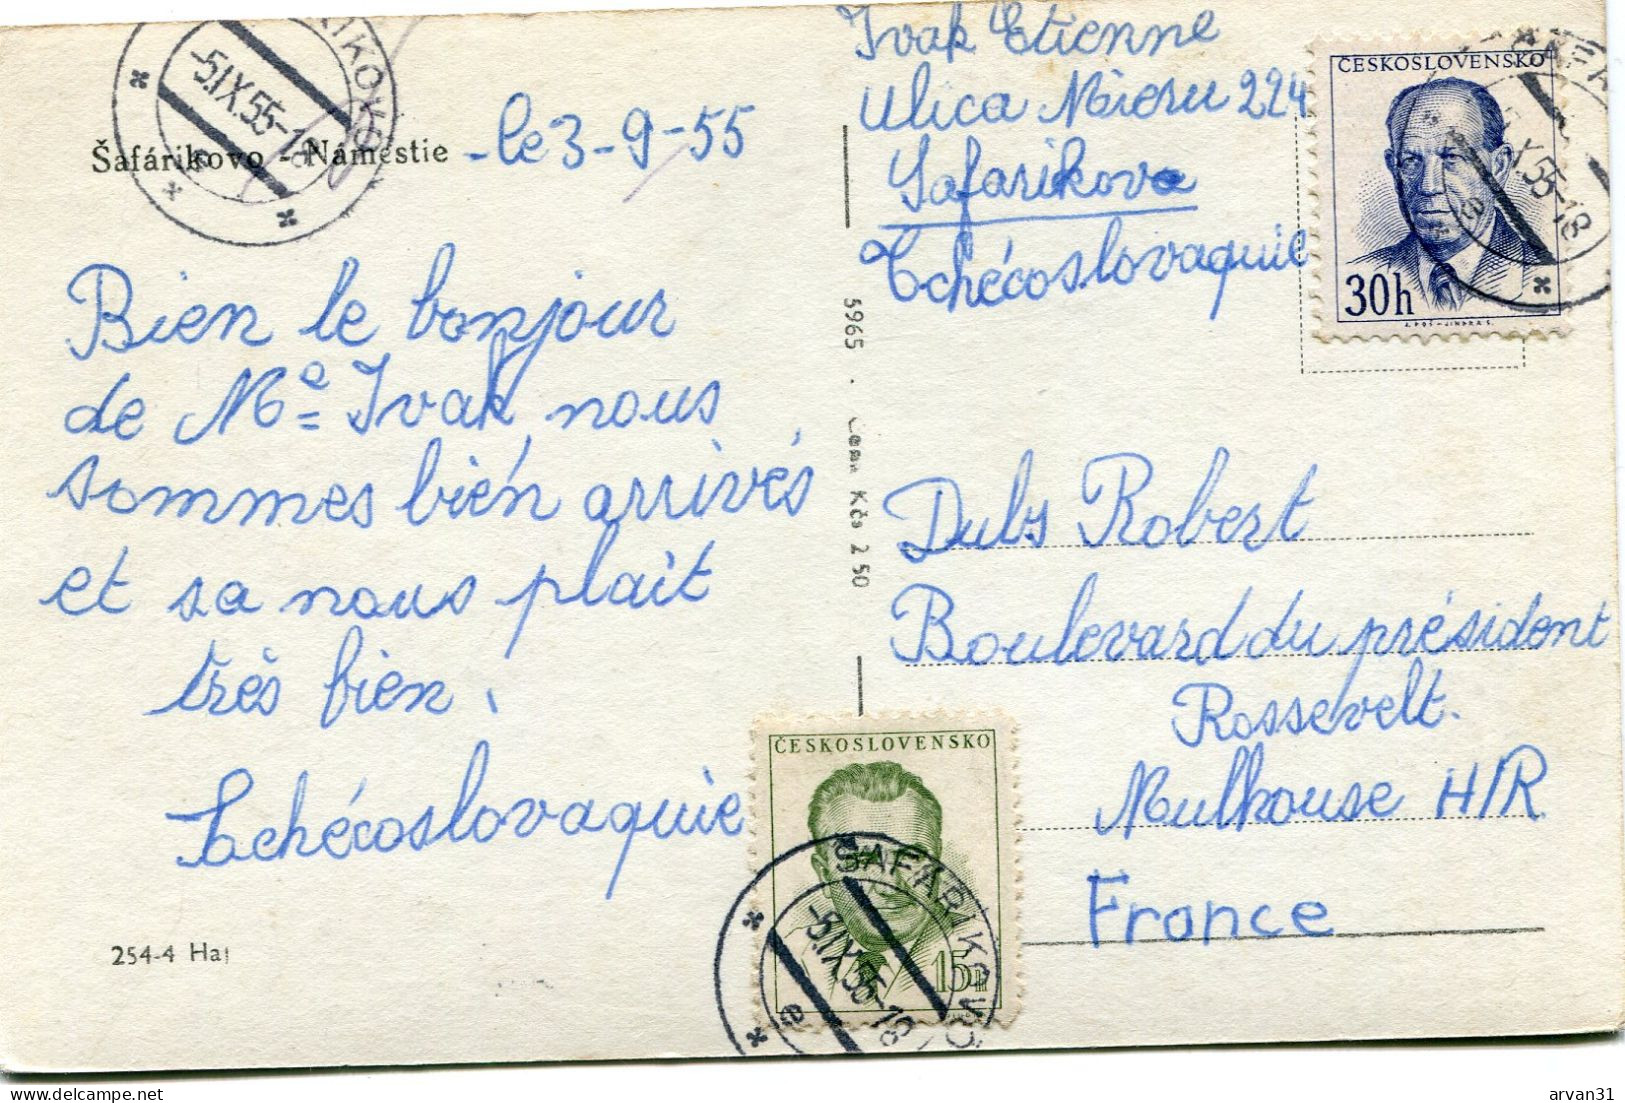 Šafárikovo - Námestie
-le 3-9-55
Bien le bonjour
de Me Ivak nous
sommes bien arrivés
et sa nous plait
très bien.
Tchécoslovaquie
254-4 Haj
5965 . Cena Kčs 2 50
Ivak Etienne
Ulica Mieru 224
Safarikovo
Tchécoslovaquie
ČESKOSLOVENSKO
30h
Dubs Robert
Boulevard du président
Rossevelt.
Mulhouse H/R
France
ČESKOSLOVENSKO
15h
ŠAFÁRIKOVO
-5.IX.55-18
e
-5.IX.55-18
arvan31